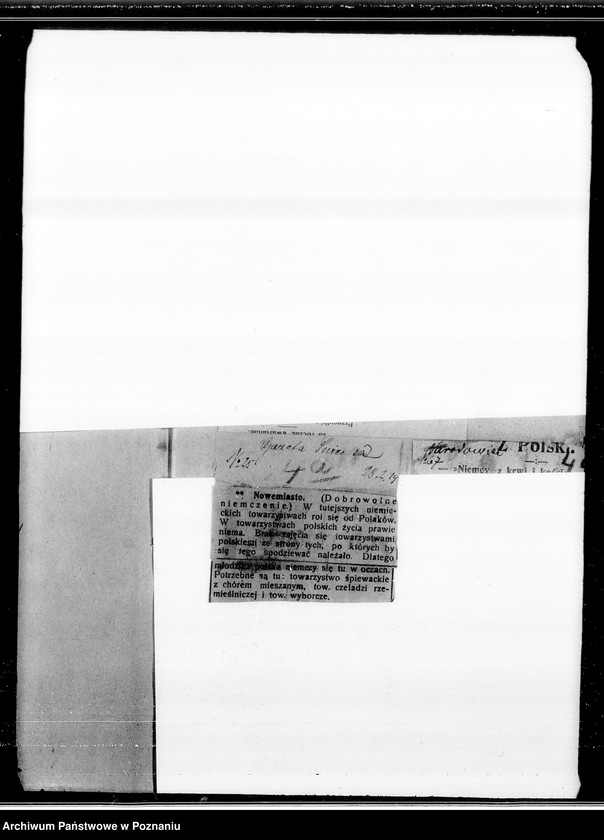 Gazeta
28.2.14
Narodowiec
4
POLSKI
»Niemcy z krwi i kości
** Nowemiasto. (Dobrowolne
niemczenie.) W tutejszych niemie-
ckich towarzystwach roi się od Polaków.
W towarzystwach polskich życia prawie
niema. Brak zajęcia się towarzystwami
polskiemi ze strony tych, po których by
się tego spodziewać należało. Dlatego
młodzież polska niemczy się tu w oczach.
Potrzebne są tu: towarzystwo śpiewackie
z chórem mieszanym, tow. czeladzi rze-
mieślniczej i tow. wyborcze.
Archiwum Państwowe w Poznaniu